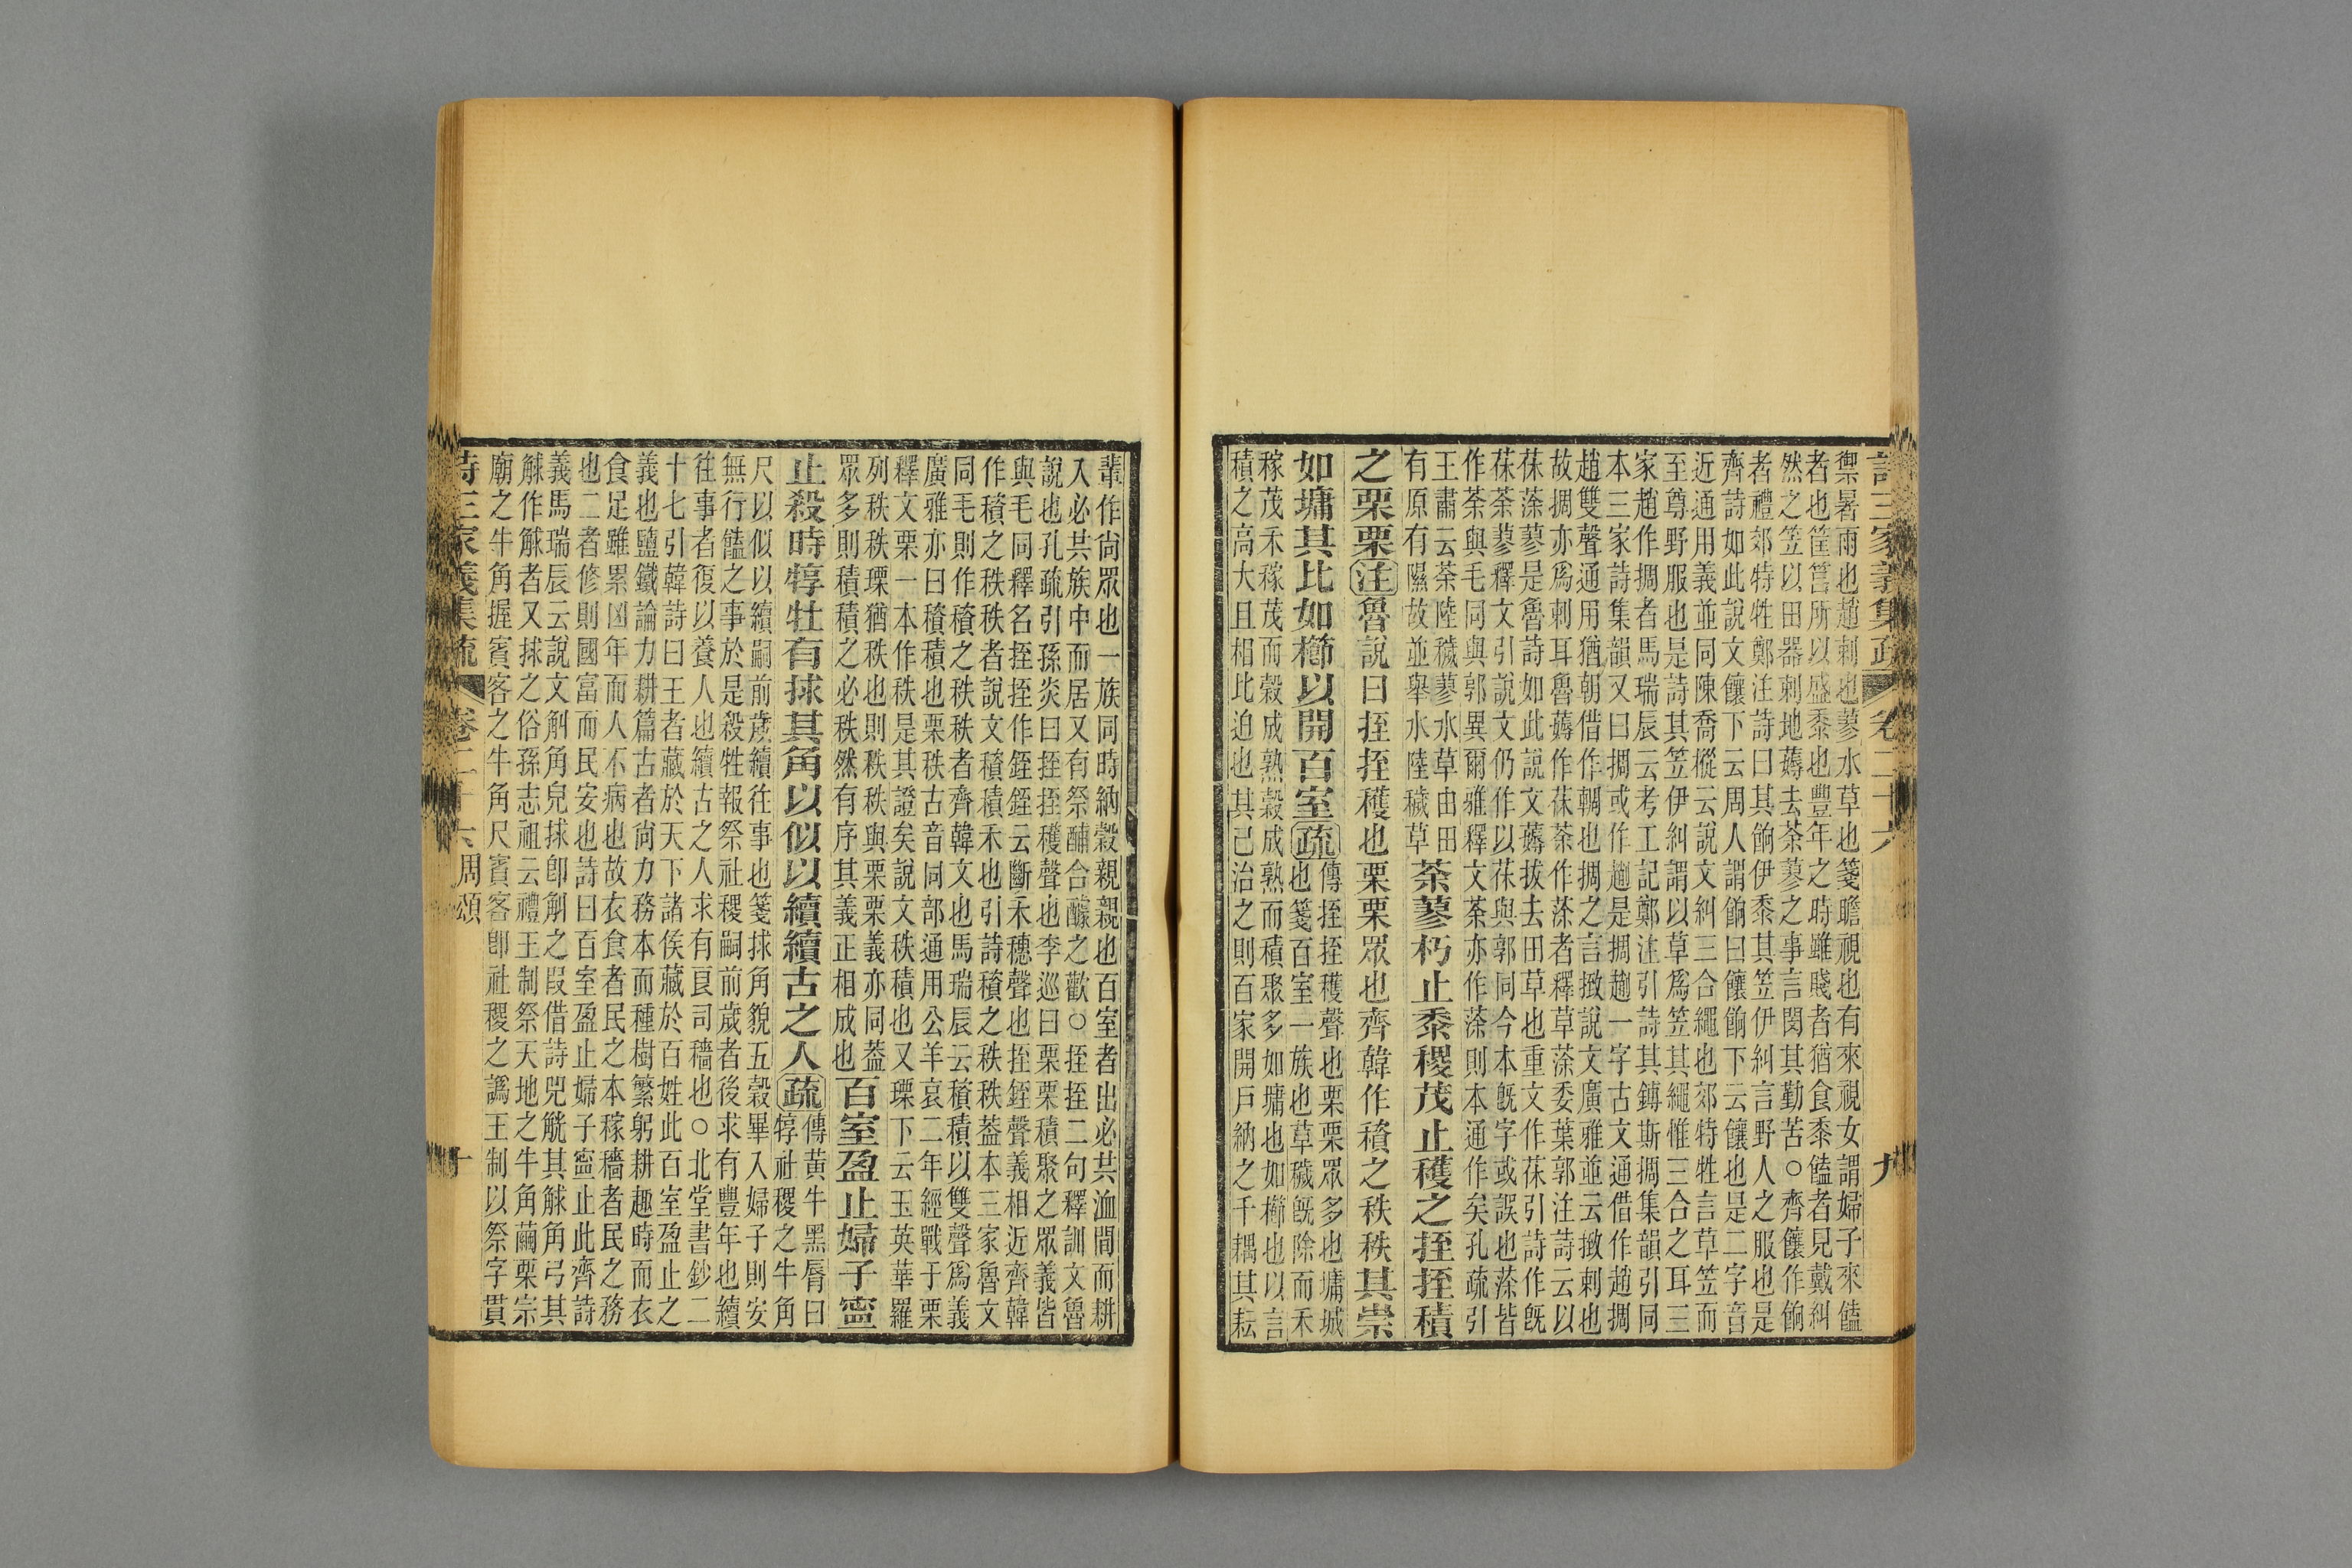 詩三家義集疏 卷二十六 九
禦暑雨也趙刺也蓼水草也箋瞻視也有來視女謂婦子來饁
者也筐筥所以盛黍也豐年之時雖賤者猶食黍饁者見戴糾
然之笠以田器刺地薅去荼蓼之事言閔其勤苦○齊饟作餉
者禮郊特牲鄭注詩曰其餉伊黍其笠伊糾言野人之服也是
齊詩如此說文饟下云周人謂餉曰饟餉下云饟也是二字音
近通用義並同陳喬樅云說文糾三合繩也郊特牲言草笠而
至尊野服也是詩其笠伊糾謂以草爲笠其繩惟三合之耳三
家趙作搊者馬瑞辰云考工記鄭注引詩其鎛斯搊集韻引同
本三家詩集韻又曰搊或作趟是搊趟一字古文通借作趙搊
趙雙聲通用猶朝借作輖也搊之言撽說文廣雅並云撽刺也
故搊亦爲刺耳魯薅作茠荼作蒤者釋草蒤委葉郭注詩云以
茠蒤蓼是魯詩如此說文薅拔去田草也重文作茠引詩作旣
茠荼蓼釋文引說文仍作以茠與郭同今本旣字或誤也蒤皆
作荼與毛同與郭異爾雅釋文荼亦作蒤則本通作矣孔疏引
王肅云荼陸穢蓼水草由田
有原有隰故並舉水陸穢草
荼蓼朽止黍稷茂止穫之挃挃積
之栗栗注魯說曰挃挃穫也栗栗眾也齊韓作䅣之秩秩其崇
如墉其比如櫛以開百室疏
傳挃挃穫聲也栗栗眾多也墉城
也箋百室一族也草穢旣除而禾
稼茂禾稼茂而穀成熟穀成熟而積聚多如墉也如櫛也以言
積之高大且相比迫也其已治之則百家開戶納之千耦其耘
輩作尙眾也一族同時納穀親親也百室者出必共洫閒而耕
入必共族中而居又有祭酺合醵之歡○挃挃二句釋訓文魯
說也孔疏引孫炎曰挃挃穫聲也李巡曰栗栗積聚之眾義皆
與毛同釋名挃挃作銍銍云斷禾穗聲也挃銍聲義相近齊韓
作䅣之秩秩者說文䅣積禾也引詩䅣之秩秩葢本三家魯文
同毛則作䅣之秩秩者齊韓文也馬瑞辰云䅣積以雙聲爲義
廣雅亦曰䅣積也栗秩古音同部通用公羊哀二年經戰于栗
釋文栗一本作秩是其證矣說文秩積也又瑮下云玉英華羅
列秩秩瑮猶秩也則秩秩與栗栗義亦同葢
眾多則積積之必秩然有序其義正相成也
百室盈止婦子寧
止殺時犉牡有捄其角以似以續續古之人疏
傳黃牛黑脣曰
犉社稷之牛角
尺以似以續嗣前歲續往事也箋捄角貌五穀畢入婦子則安
無行饁之事於是殺牲報祭社稷嗣前歲者後求有豐年也續
往事者復以養人也續古之人求有良司穡也○北堂書鈔二
十七引韓詩曰王者藏於天下諸侯藏於百姓此百室盈止之
義也鹽鐵論力耕篇古者尙力務本而種樹繁躬耕趣時而衣
食足雖累凶年而人不病也故衣食者民之本稼穡者民之務
也二者修則國富而民安也詩曰百室盈止婦子寧止此齊詩
義馬瑞辰云說文觓角皃捄卽觓之叚借詩兕觥其觩角弓其
觩作觩者又捄之俗孫志祖云禮王制祭天地之牛角繭栗宗
廟之牛角握賓客之牛角尺賓客卽社稷之譌王制以祭字貫
詩三家義集疏 卷二十六 周頌 十